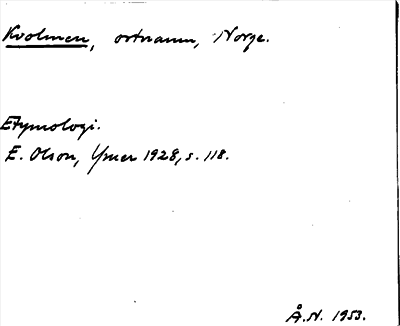 Kvolmen, ortnamn, Norge.
Etymologi.
E. Olson, Ymer 1928, s. 118.
Å.N. 1953.